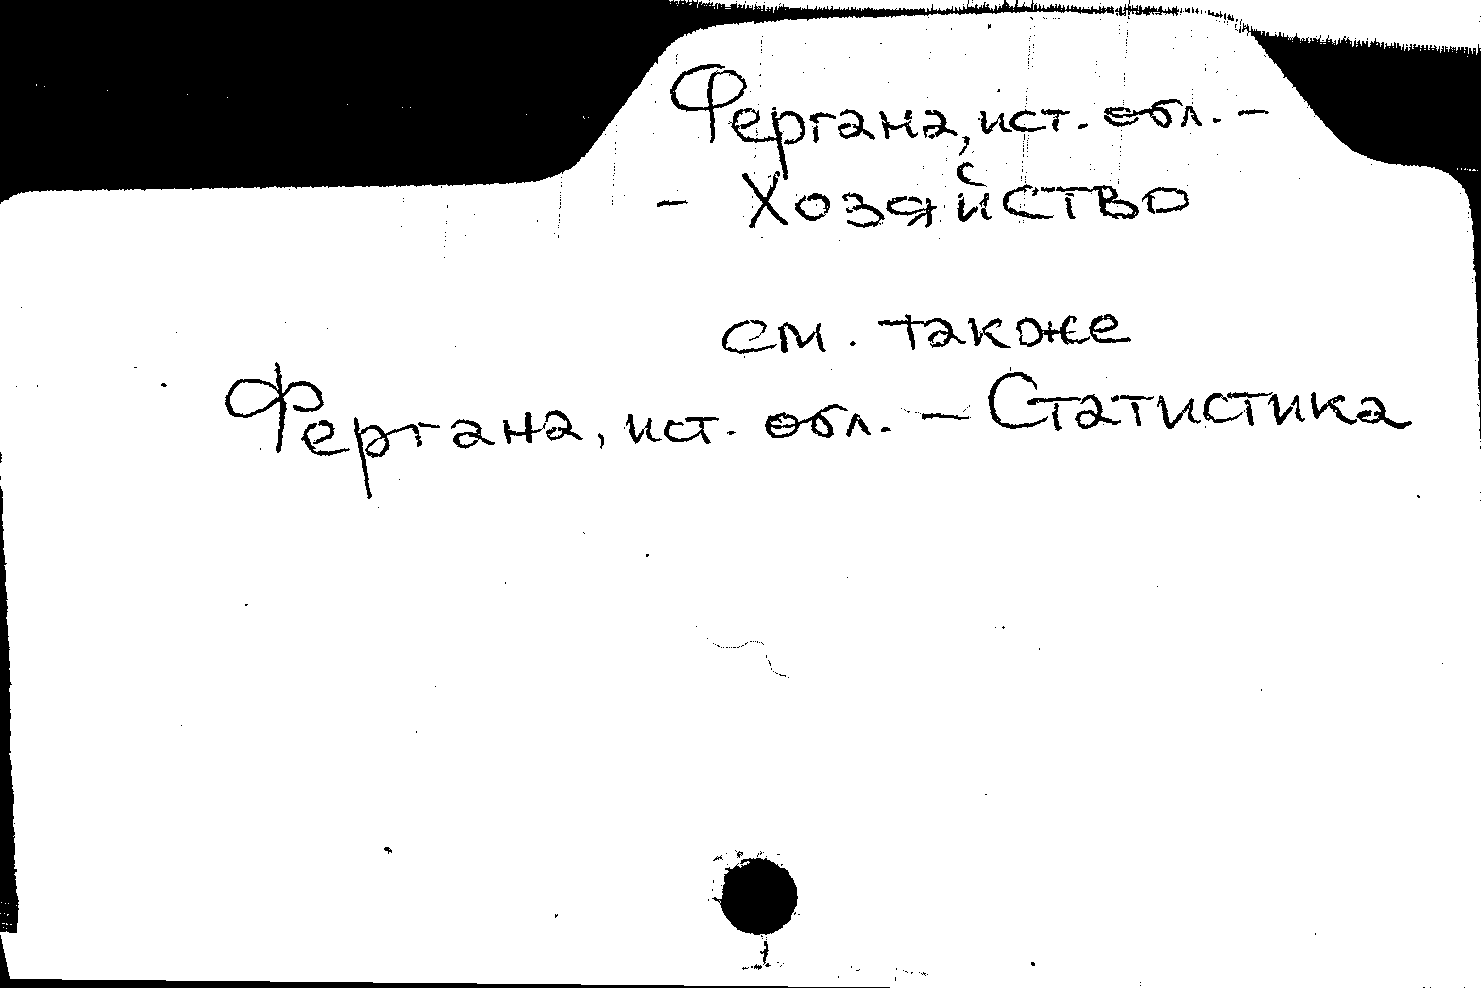 Фергана, ист. обл. -
- Хозяйство
см. также
Фергана, ист. обл. - Статистика